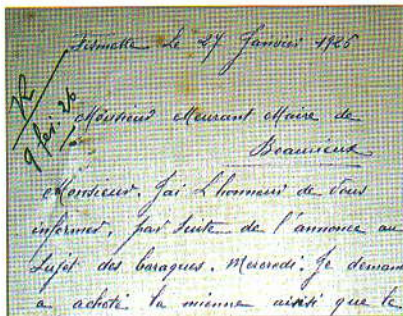 Fismette le 27 Janvier 1926
R
9 fév. 26
Monsieur Meurant Maire de
Beaurieux
Monsieur. J'ai L'honneur de Vous
informer, par Suite de l'annonce au
Sujet des baraques. Mercredi. Je deman
a acheté la mienne ainsi que le